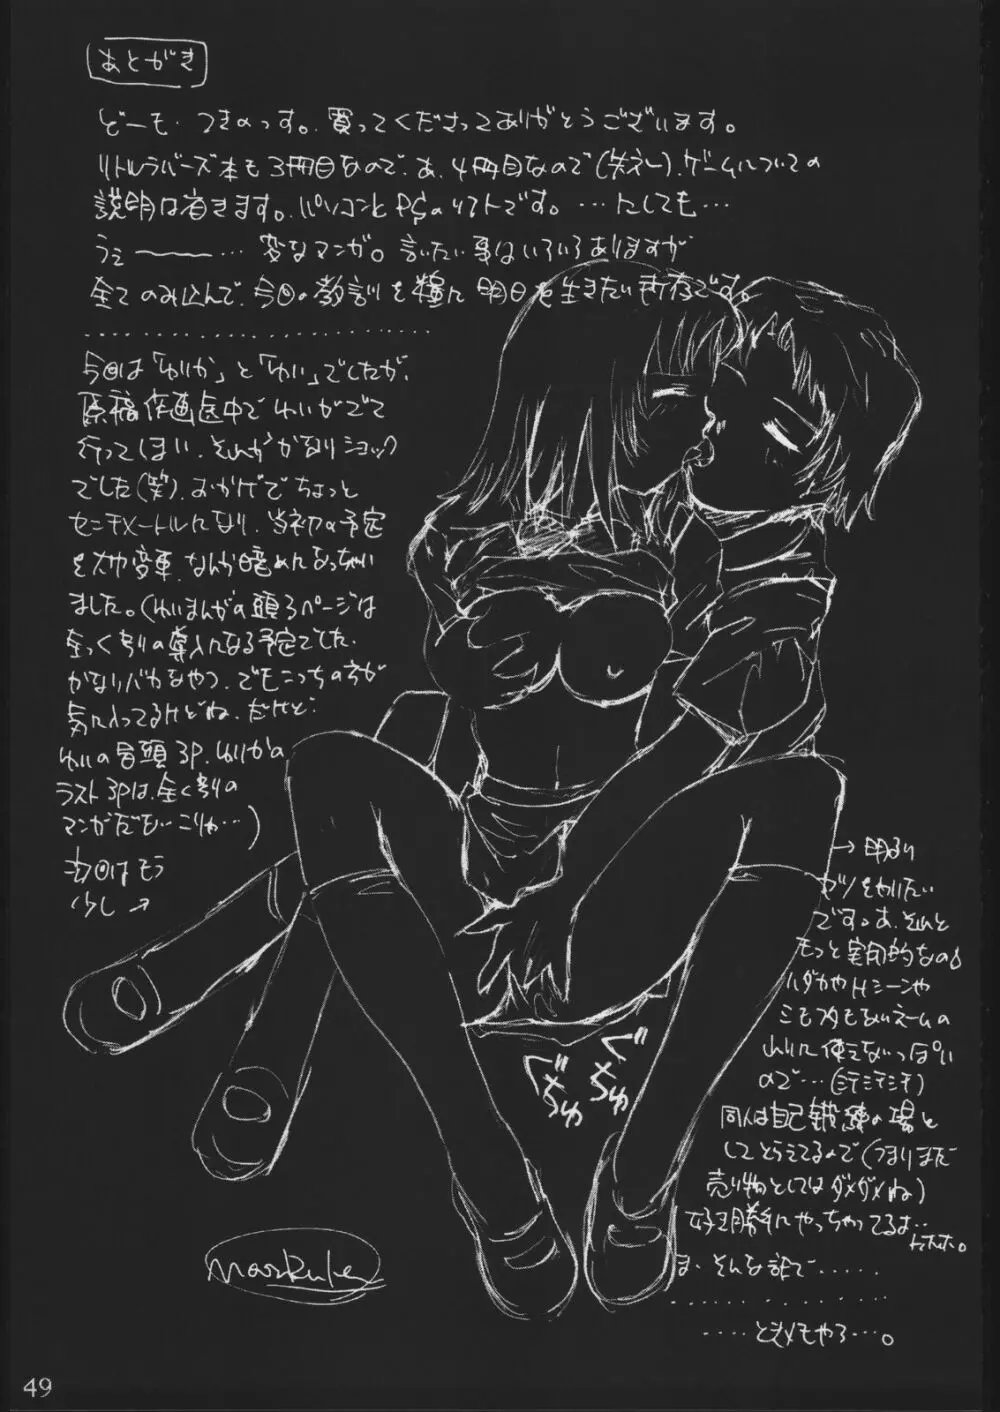 あとがき
どーも、つきのっす。買ってくださってありがとうございます。
リトルラバーズ本も3冊目なので、あ、4冊目なので(笑えー)、ゲームについての
説明は省きます。パソコンとPSのソフトです。…にしても…
うぇ――…変なマンガ。言いたい事はいろいろありますが
全てのみ込んで、今回の教訓を糧に明日を生きたい所存です。
今回は「ゆりか」と「ゆい」でしたが、
原稿作画途中でゆいがでて
行ってしまい、それがかなりショック
でした(笑)。おかげでちょっと
センチメートルになり、当初の予定
を大巾変更、なんか暗めになっちゃい
ました。(ゆいまんがの頭3ページは
全っく別の導入になる予定でした。
かなりバカなやつ。でもこっちの方が
気に入ってるけどね。だけど、
ゆいの冒頭3P、ゆりかの
ラスト3Pは、全く別の
マンガだな…こりゃ…)
次回はもう
少し→
→明るい
ヤツをやりたい
です。あ、それと
もっと実用的なの♂
ハダカやHシーンや
ミもフタもないえームの
わりに使えないっぽい
ので…(ミテミテミテ)
同人は自己鍛練の場と
してとらえてるので(つまりまだ
売り物としてはダメダメね)
好き勝手にやっちゃってるよ…
トホホ。
ま、そんな訳で・・・・・
・・・・ときメモやろ…。
ぐちゅ
ぐちゅ
49